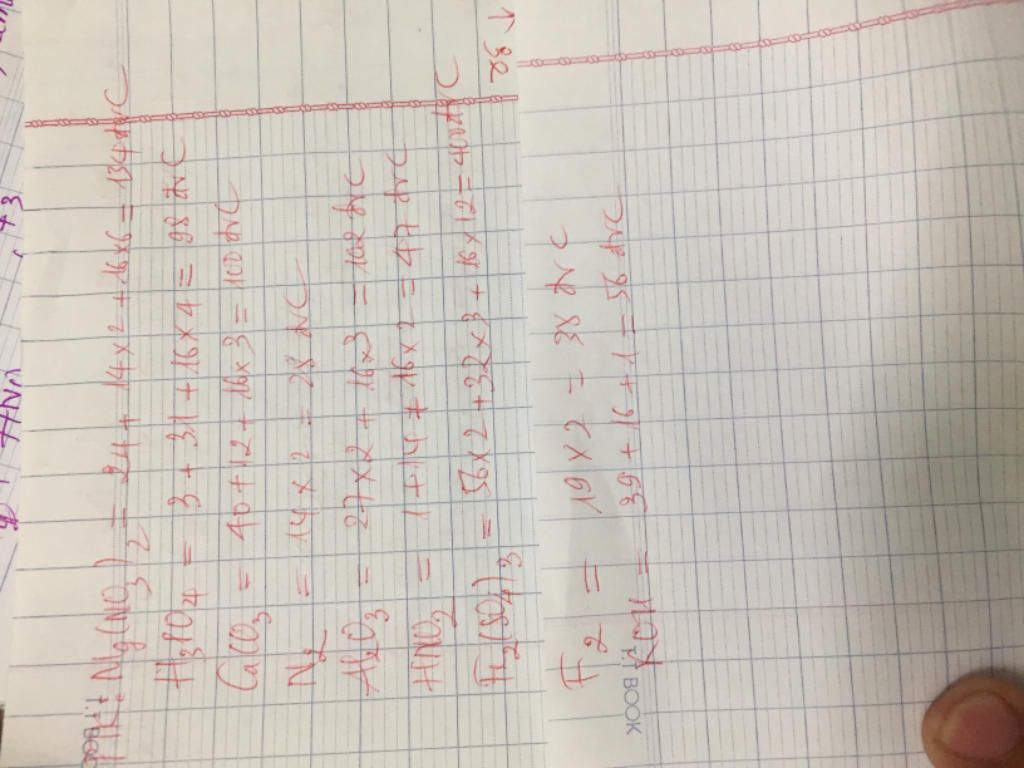 PTK: Mg(NO3)2 = 24 + 14 x 2 + 16 x 6 = 134 đvC
H3PO4 = 3 + 31 + 16 x 4 = 98 đvC
CaCO3 = 40 + 12 + 16 x 3 = 100 đvC
N2 = 14 x 2 = 28 đvC
Al2O3 = 27 x 2 + 16 x 3 = 102 đvC
HNO2 = 1 + 14 + 16 x 2 = 47 đvC
Fe2(SO4)3 = 56 x 2 + 32 x 3 + 16 x 12 = 400 đvC
F2 = 19 x 2 = 38 đvC
KOH = 39 + 16 + 1 = 56 đvC
BOOK